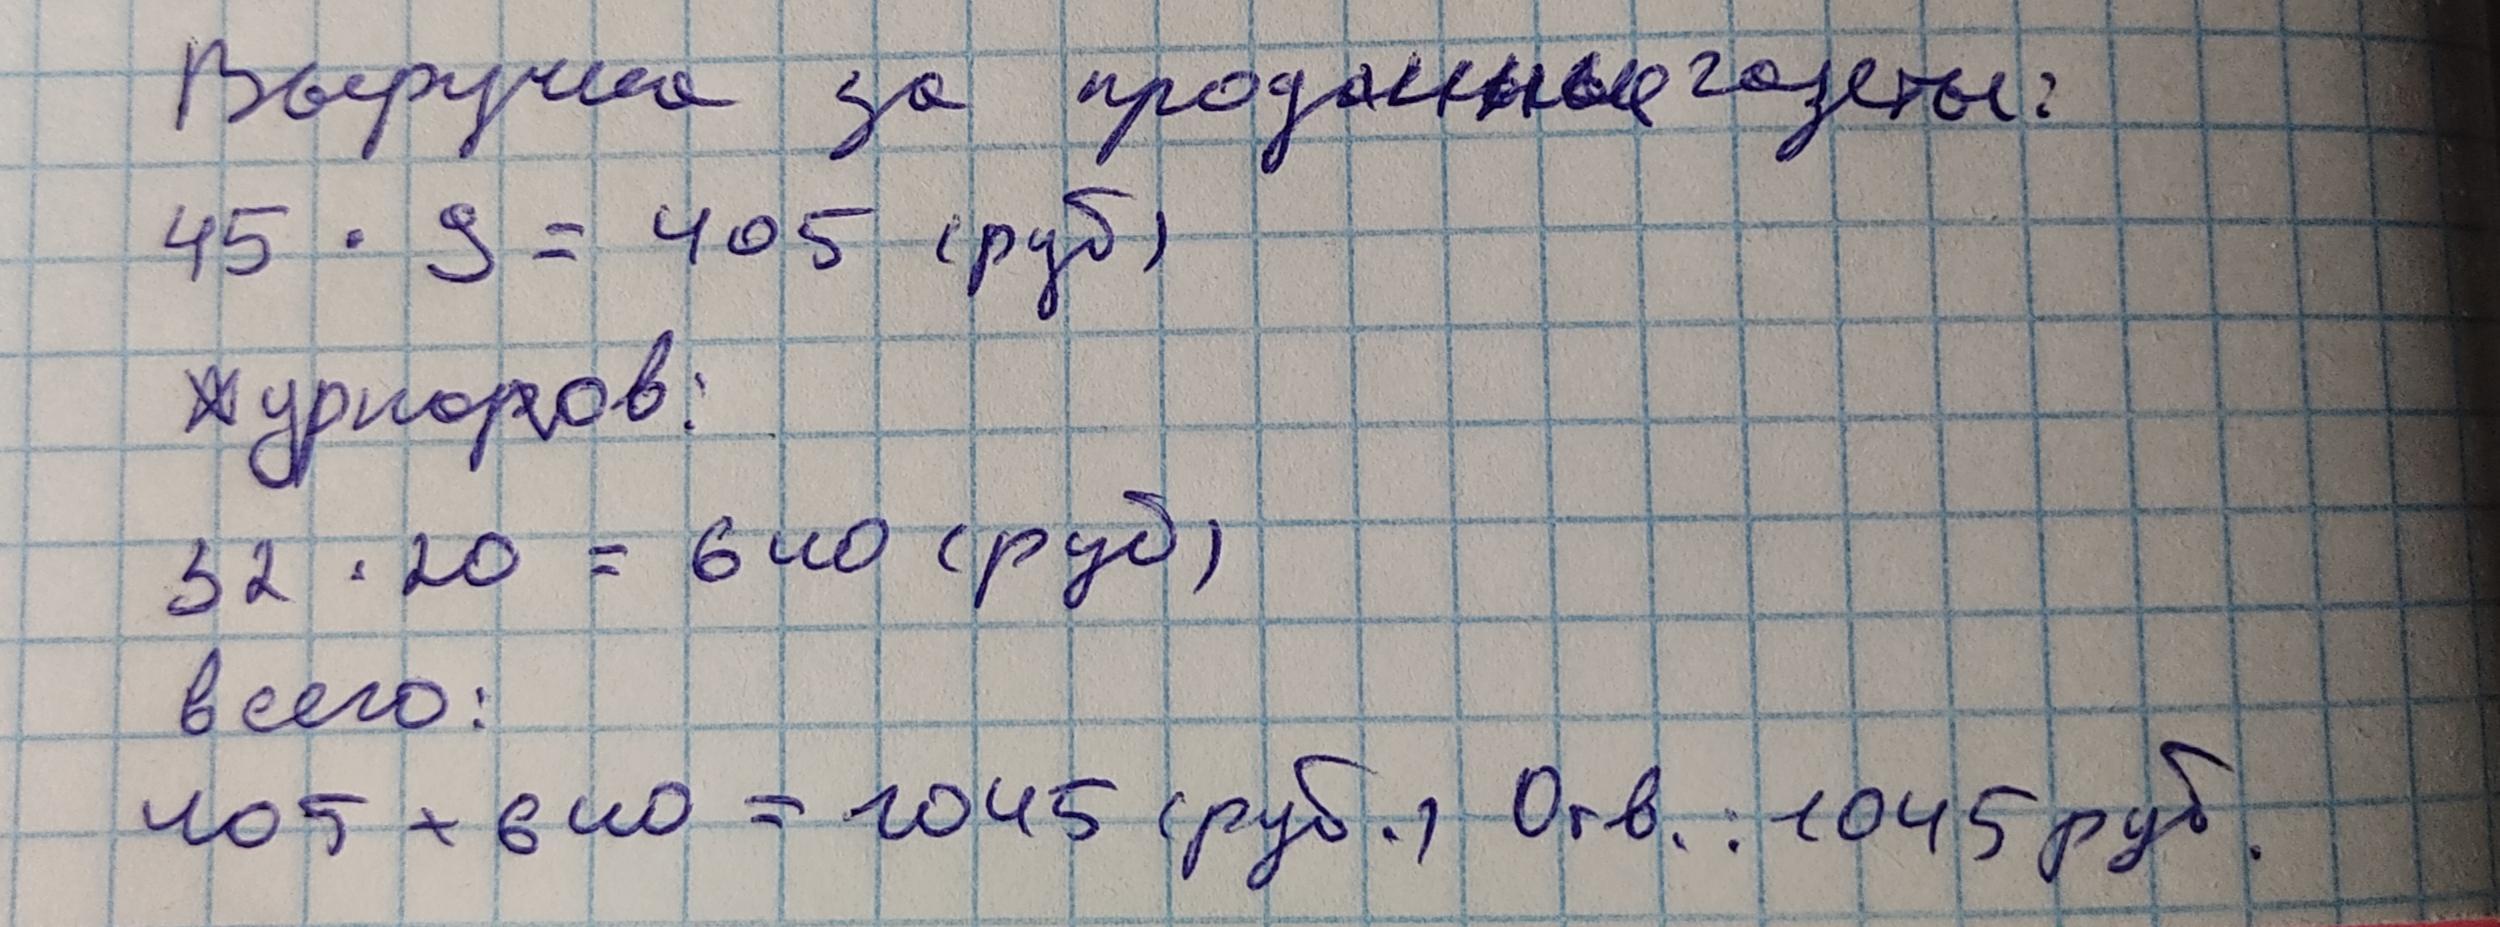 Выручка за проданные газеты:
45 · 9 = 405 (руб)
журналов:
32 · 20 = 640 (руб)
всего:
405 + 640 = 1045 (руб.) Отв.: 1045 руб.